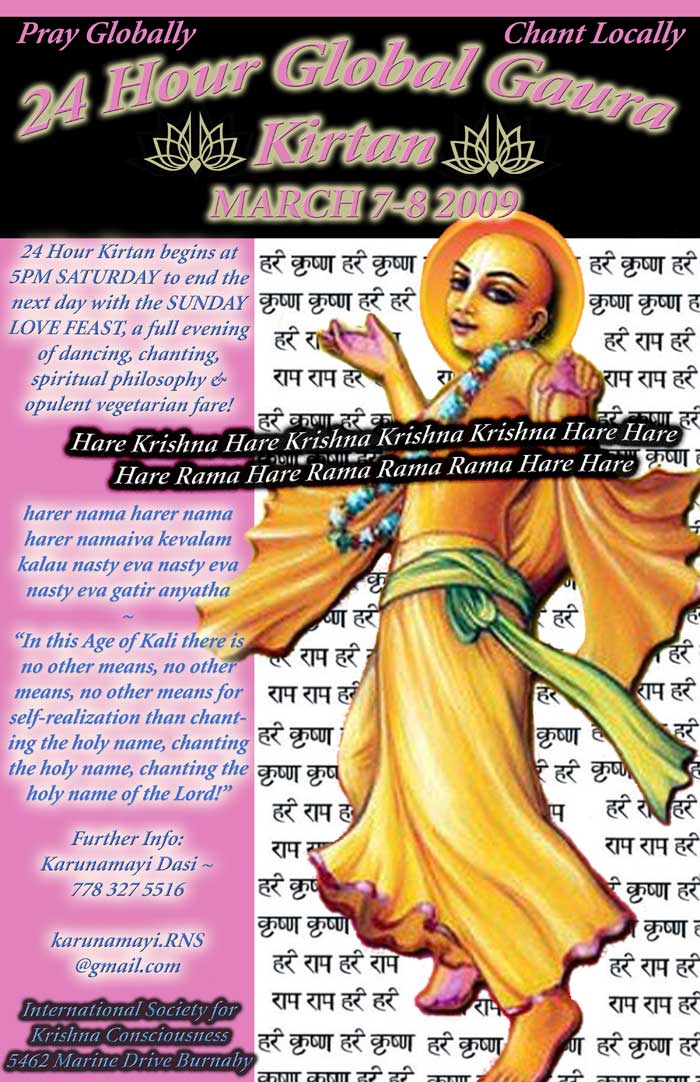 Pray Globally
Chant Locally
24 Hour Global Gaura
Kirtan
MARCH 7-8 2009
24 Hour Kirtan begins at
5PM SATURDAY to end the
next day with the SUNDAY
LOVE FEAST, a full evening
of dancing, chanting,
spiritual philosophy &
opulent vegetarian fare!
Hare Krishna Hare Krishna Krishna Krishna Hare Hare
Hare Rama Hare Rama Rama Rama Hare Hare
harer nama harer nama
harer namaiva kevalam
kalau nasty eva nasty eva
nasty eva gatir anyatha
~
“In this Age of Kali there is
no other means, no other
means, no other means for
self-realization than chant-
ing the holy name, chanting
the holy name, chanting the
holy name of the Lord!”
Further Info:
Karunamayi Dasi ~
778 327 5516
karunamayi.RNS
@gmail.com
International Society for
Krishna Consciousness
5462 Marine Drive Burnaby
हरे कृष्ण हरे कृष्ण हरे कृष्ण हरे
कृष्ण कृष्ण हरे हरे कृष्ण कृष्ण
हरे हरे राम हरे
राम राम हरे राम राम हरे
हरे कृष्ण हरे
कृष्ण हरे
हरे राम हरे हरे
राम राम हरे हरे राम हरे
हरे कृष्ण कृष्ण हरे
कृष्ण कृष्ण हरे कृष्ण
हरे राम हरे हरे
राम राम राम हरे
हरे कृष्ण कृष्ण हरे
कृष्ण कृष्ण कृष्ण
हरे राम हरे राम हरे राम हरे
राम राम हरे हरे राम राम हरे हरे
हरे कृष्ण हरे कृष्ण हरे कृष्ण हरे कृष्ण हरे